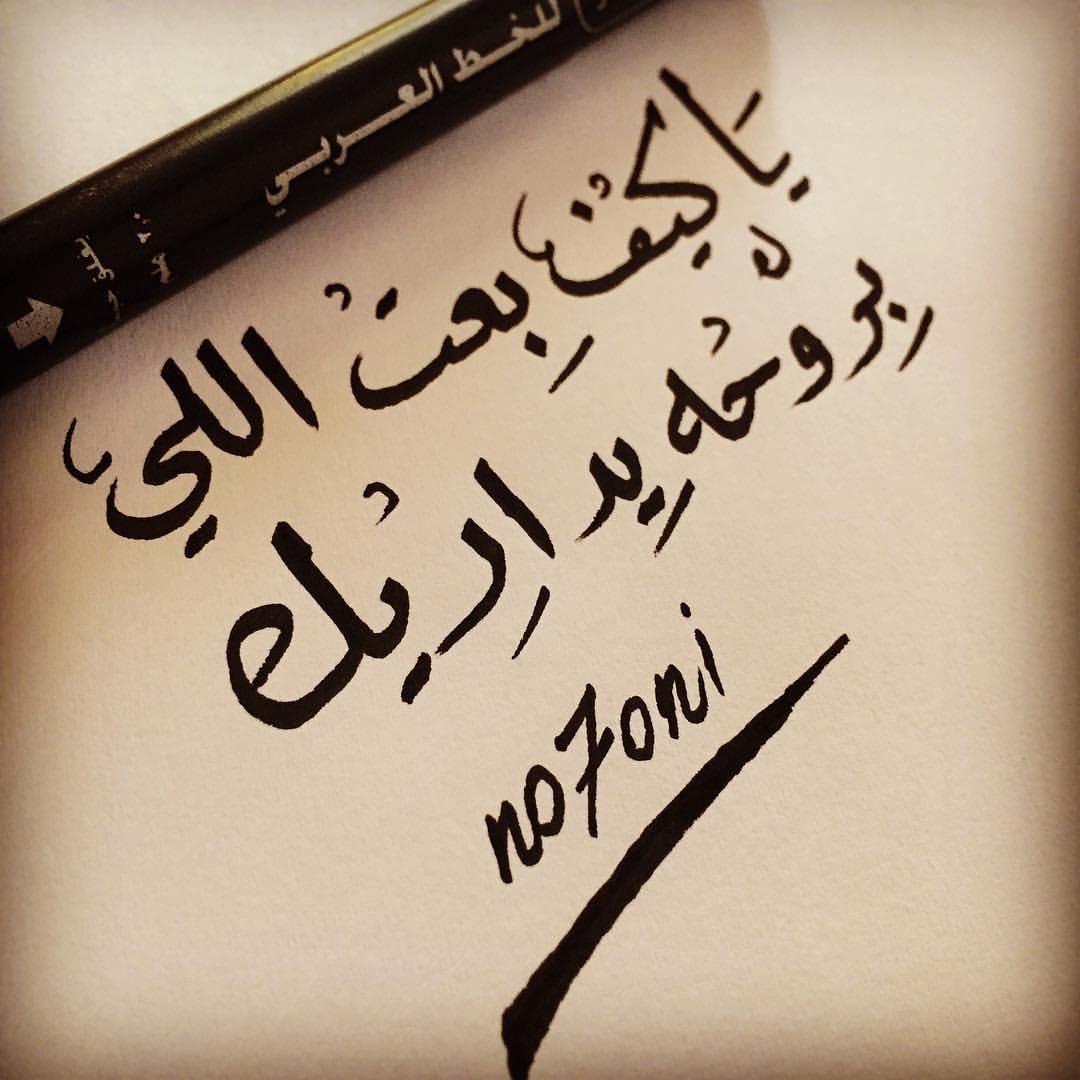 للخط العربي
يَا كيْف بِعتْ اللي
بِروْحْهِ يدارِيْك
no7oni